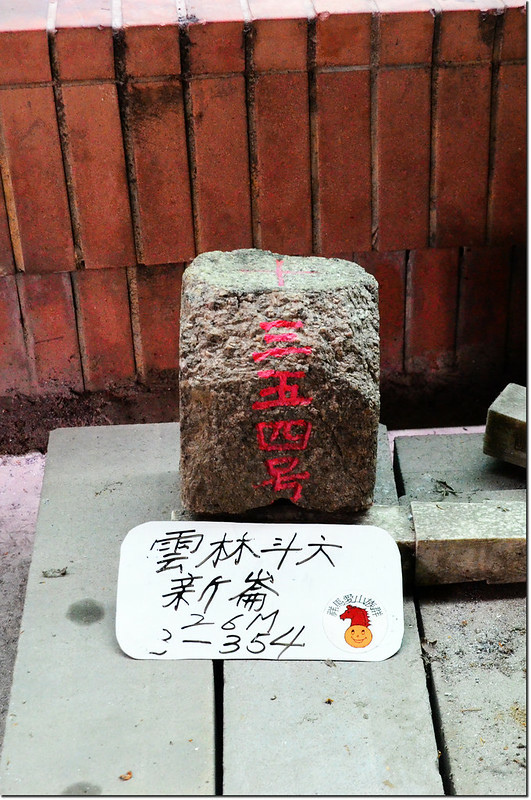 三
五
四
号
雲林斗六
新崙
26M
3-354